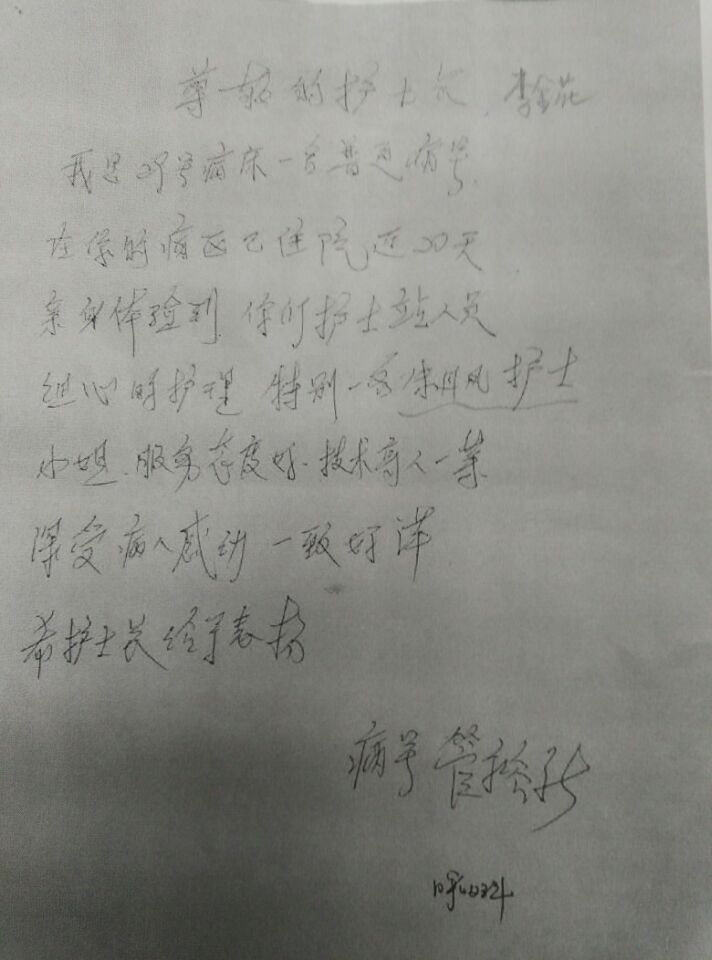 尊敬的护士长 李金花
我是29号病床一名普通病号
在你的病区已住院近20天
亲身体验到 你们护士站人员
细心的护理 特别一名朱丹凤护士
小姐.服务态度好.技术高人一等
深受病人感动 一致好评
希护士长给予表扬
病号 管
呼吸科